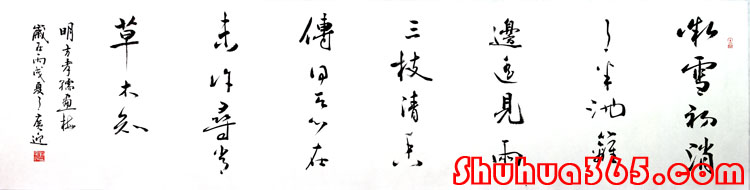 微雪初消
月半池籬
邊遥見兩
三枝清香
傳得天心在
未許尋常
草木知
明方孝孺畫梅
歲在丙戌夏月
Shuhua365.com